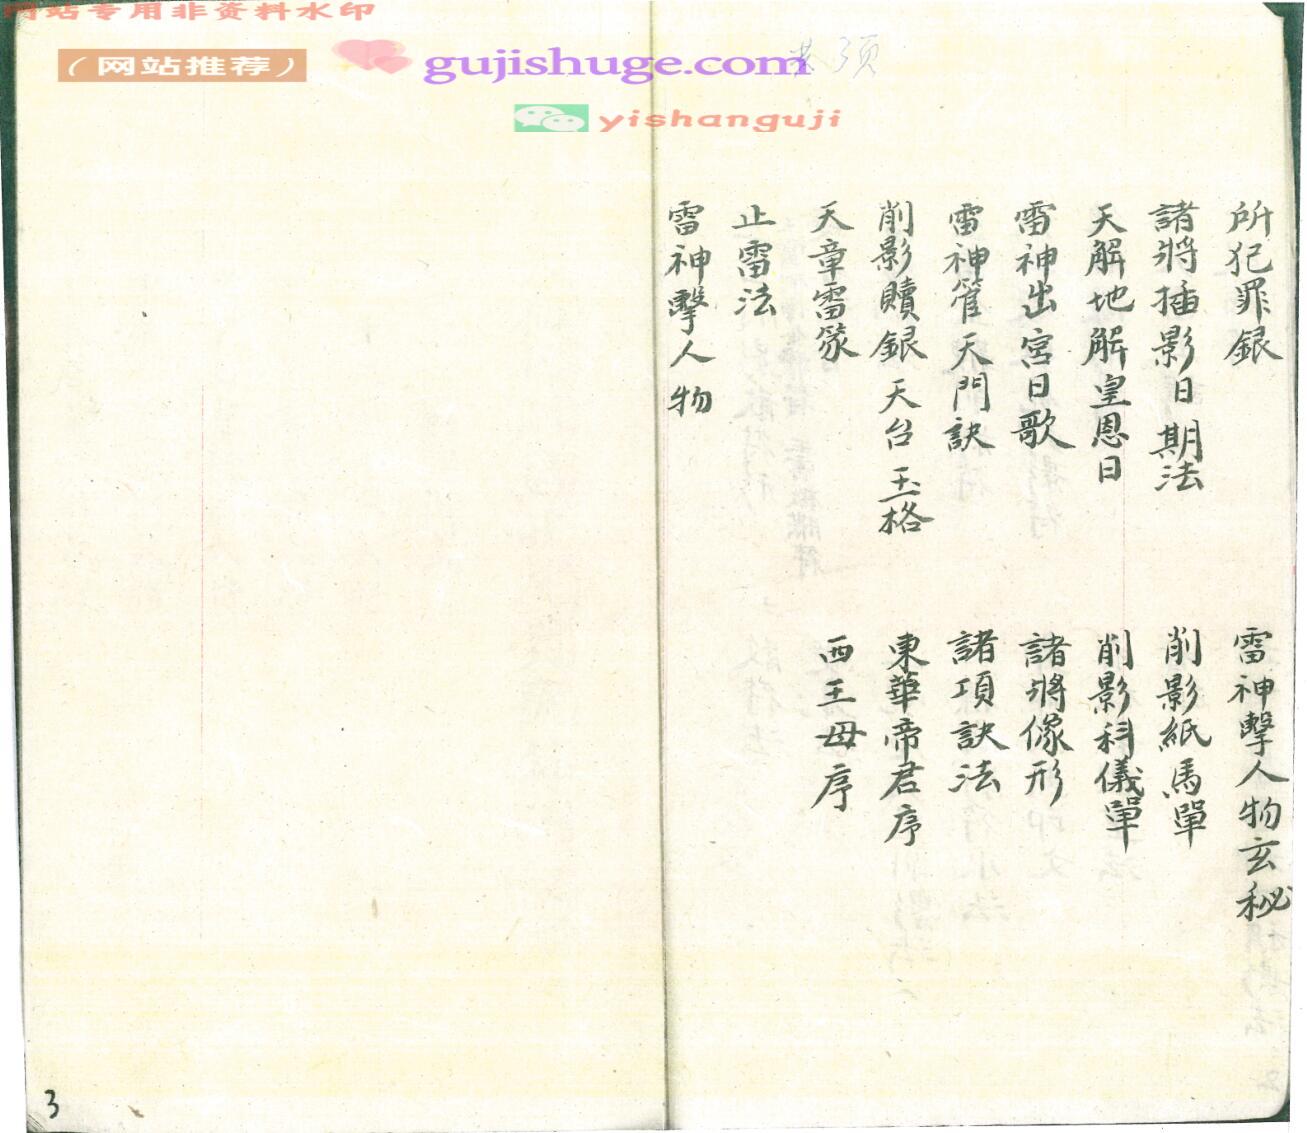 网站专用非资料水印
（网站推荐）
gujishuge.com
yishanguji
所犯罪銀
諸將插影日期法
天解地解皇恩日
雷神出宮日歌
雷神管天門訣
削影贖銀天台玉格
天章雷篆
止雷法
雷神擊人物
雷神擊人物玄秘
削影紙馬單
削影科儀單
諸將像形
諸項訣法
東華帝君序
西王母序
3